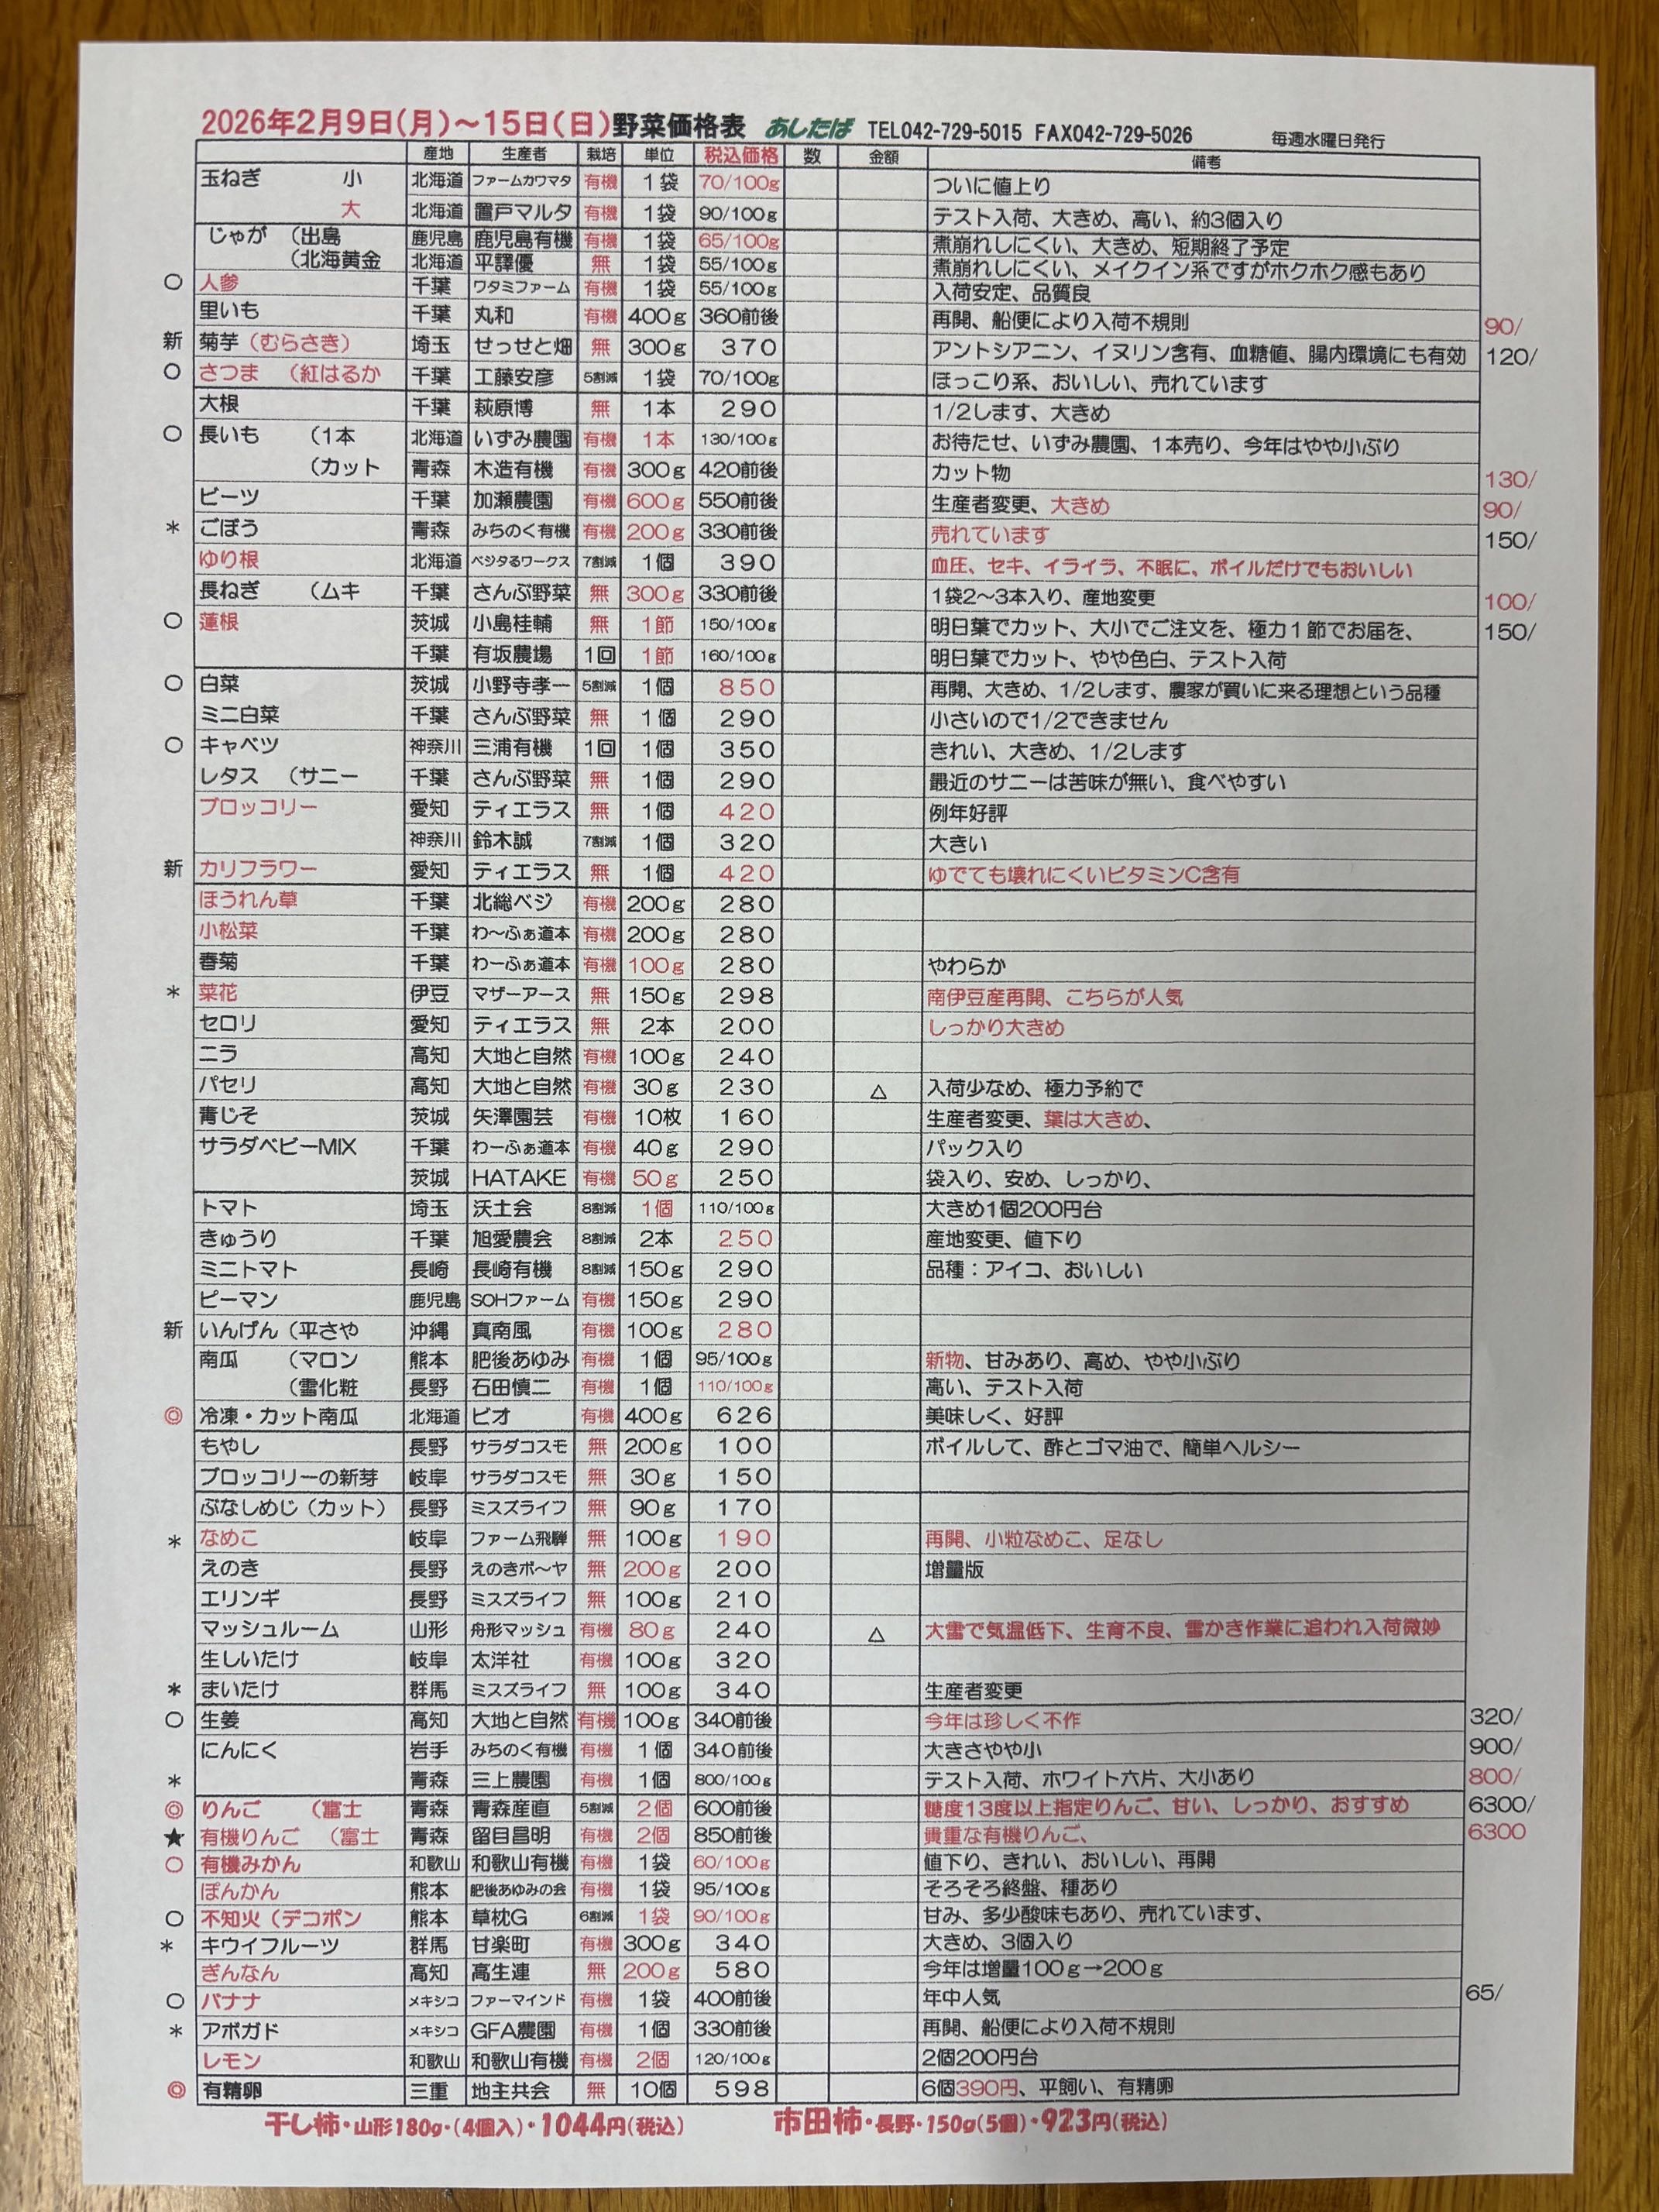 2026年2月9日(月)～15日(日)野菜価格表 あしたば TEL042-729-5015 FAX042-729-5026 毎週水曜日発行
産地 生産者 栽培 単位 税込価格 数 金額 備考
玉ねぎ 小 北海道 ファームカワマタ 有機 1袋 70/100g ついに値上り
大 北海道 置戸マルタ 有機 1袋 90/100g テスト入荷、大きめ、高い、約3個入り
じゃが (出島 鹿児島 鹿児島有機 有機 1袋 65/100g 煮崩れしにくい、大きめ、短期終了予定
(北海黄金 北海道 平譯優 無 1袋 55/100g 煮崩れしにくい、メイクイン系ですがホクホク感もあり
○ 人参 千葉 ワタミファーム 有機 1袋 55/100g 入荷安定、品質良
里いも 千葉 丸和 有機 400g 360前後 再開、船便により入荷不規則 90/
新 菊芋(むらさき) 埼玉 せっせと畑 無 300g 370 アントシアニン、イヌリン含有、血糖値、腸内環境にも有効 120/
○ さつま (紅はるか 千葉 工藤安彦 5割減 1袋 70/100g ほっこり系、おいしい、売れています
大根 千葉 萩原博 無 1本 290 1/2します、大きめ
○ 長いも (1本 北海道 いずみ農園 有機 1本 130/100g お待たせ、いずみ農園、1本売り、今年はやや小ぶり
(カット 青森 木造有機 有機 300g 420前後 カット物 130/
ビーツ 千葉 加瀬農園 有機 600g 550前後 生産者変更、大きめ 90/
* ごぼう 青森 みちのく有機 有機 200g 330前後 売れています 150/
ゆり根 北海道 ベジタるワークス 7割減 1個 390 血圧、セキ、イライラ、不眠に、ボイルだけでもおいしい
長ねぎ (ムキ 千葉 さんぶ野菜 無 300g 330前後 1袋2～3本入り、産地変更 100/
○ 蓮根 茨城 小島桂輔 無 1節 150/100g 明日葉でカット、大小でご注文を、極力1節でお届を、 150/
千葉 有坂農場 1回 1節 160/100g 明日葉でカット、やや色白、テスト入荷
○ 白菜 茨城 小野寺孝一 5割減 1個 850 再開、大きめ、1/2します、農家が買いに来る理想という品種
ミニ白菜 千葉 さんぶ野菜 無 1個 290 小さいので1/2できません
○ キャベツ 神奈川 三浦有機 1回 1個 350 きれい、大きめ、1/2します
レタス (サニー 千葉 さんぶ野菜 無 1個 290 最近のサニーは苦味が無い、食べやすい
ブロッコリー 愛知 ティエラス 無 1個 420 例年好評
神奈川 鈴木誠 7割減 1個 320 大きい
新 カリフラワー 愛知 ティエラス 無 1個 420 ゆでても壊れにくいビタミンC含有
ほうれん草 千葉 北総ベジ 有機 200g 280
小松菜 千葉 わ～ふぁ道本 有機 200g 280
春菊 千葉 わーふぁ道本 有機 100g 280 やわらか
* 菜花 伊豆 マザーアース 無 150g 298 南伊豆産再開、こちらが人気
セロリ 愛知 ティエラス 無 2本 200 しっかり大きめ
ニラ 高知 大地と自然 有機 100g 240
パセリ 高知 大地と自然 有機 30g 230 △ 入荷少なめ、極力予約で
青じそ 茨城 矢澤園芸 有機 10枚 160 生産者変更、葉は大きめ、
サラダベビーMIX 千葉 わーふぁ道本 有機 40g 290 パック入り
茨城 HATAKE 有機 50g 250 袋入り、安め、しっかり、
トマト 埼玉 沃土会 8割減 1個 110/100g 大きめ1個200円台
きゅうり 千葉 旭愛農会 8割減 2本 250 産地変更、値下り
ミニトマト 長崎 長崎有機 8割減 150g 290 品種：アイコ、おいしい
ピーマン 鹿児島 SOHファーム 有機 150g 290
新 いんげん(平さや 沖縄 真南風 有機 100g 280
南瓜 (マロン 熊本 肥後あゆみ 有機 1個 95/100g 新物、甘みあり、高め、やや小ぶり
(雪化粧 長野 石田慎二 有機 1個 110/100g 高い、テスト入荷
◎ 冷凍・カット南瓜 北海道 ビオ 有機 400g 626 美味しく、好評
もやし 長野 サラダコスモ 無 200g 100 ボイルして、酢とゴマ油で、簡単ヘルシー
ブロッコリーの新芽 岐阜 サラダコスモ 無 30g 150
ぶなしめじ(カット) 長野 ミスズライフ 無 90g 170
* なめこ 岐阜 ファーム飛騨 無 100g 190 再開、小粒なめこ、足なし
えのき 長野 えのきボ～ヤ 無 200g 200 増量版
エリンギ 長野 ミスズライフ 無 100g 210
マッシュルーム 山形 舟形マッシュ 有機 80g 240 △ 大雪で気温低下、生育不良、雪かき作業に追われ入荷微妙
生しいたけ 岐阜 太洋社 有機 100g 320
* まいたけ 群馬 ミスズライフ 無 100g 340 生産者変更
○ 生姜 高知 大地と自然 有機 100g 340前後 今年は珍しく不作 320/
にんにく 岩手 みちのく有機 有機 1個 340前後 大きさやや小 900/
* 青森 三上農園 有機 1個 800/100g テスト入荷、ホワイト六片、大小あり 800/
◎ りんご (富士 青森 青森産直 5割減 2個 600前後 糖度13度以上指定りんご、甘い、しっかり、おすすめ 6300/
★ 有機りんご (富士 青森 留目昌明 有機 2個 850前後 貴重な有機りんご、 6300
○ 有機みかん 和歌山 和歌山有機 有機 1袋 60/100g 値下り、きれい、おいしい、再開
ぽんかん 熊本 肥後あゆみの会 有機 1袋 95/100g そろそろ終盤、種あり
○ 不知火(デコポン 熊本 草枕G 6割減 1袋 90/100g 甘み、多少酸味もあり、売れています、
* キウイフルーツ 群馬 甘楽町 有機 300g 340 大きめ、3個入り
ぎんなん 高知 高生連 無 200g 580 今年は増量100g→200g
○ バナナ メキシコ ファーマインド 有機 1袋 400前後 年中人気 65/
* アボガド メキシコ GFA農園 有機 1個 330前後 再開、船便により入荷不規則
レモン 和歌山 和歌山有機 有機 2個 120/100g 2個200円台
◎ 有精卵 三重 地主共会 無 10個 598 6個390円、平飼い、有精卵
干し柿・山形180g・(4個入)・1044円(税込) 市田柿・長野・150g(5個)・923円(税込)